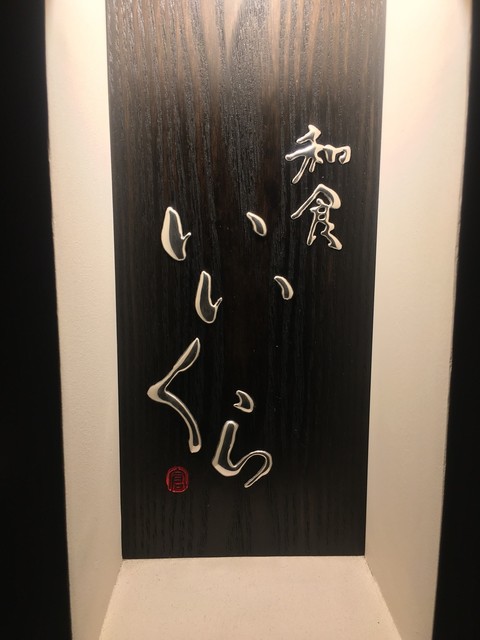 和食
いいくら